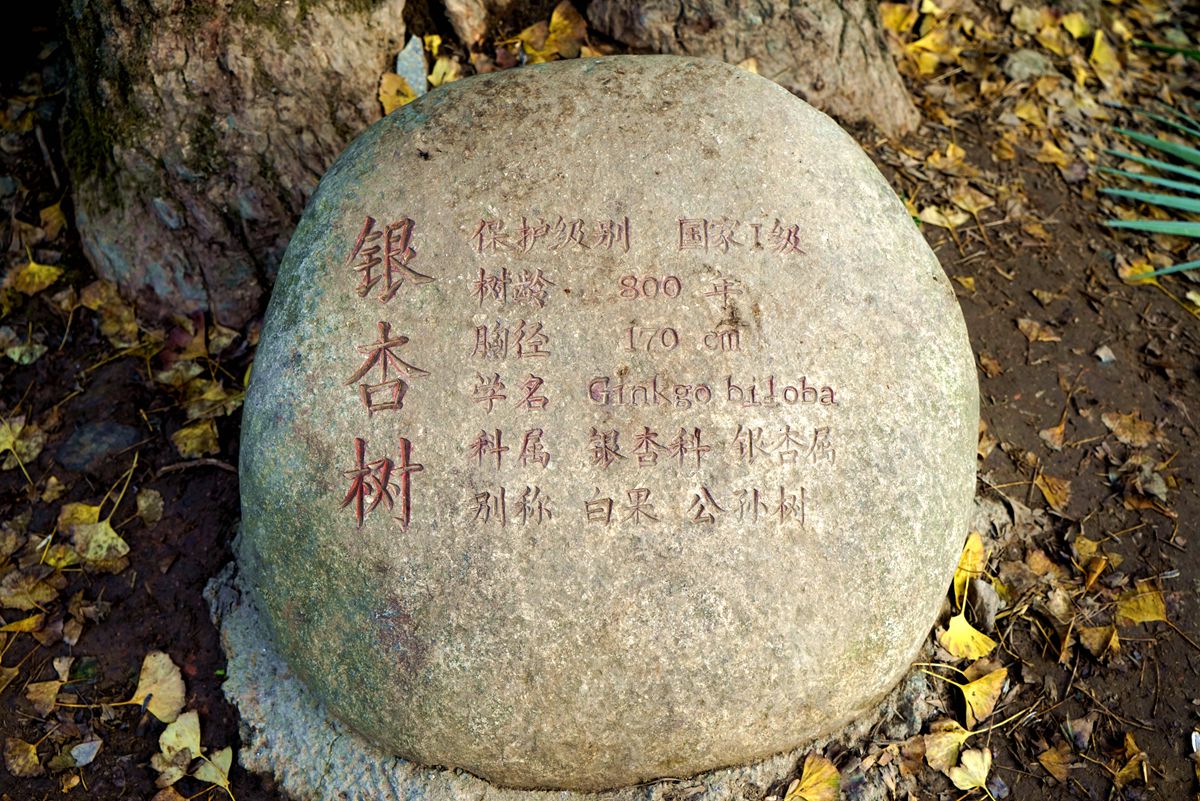 银杏树
保护级别 国家I级
树龄 800 年
胸径 170 cm
学名 Ginkgo biloba
科属 银杏科 银杏属
别称 白果 公孙树